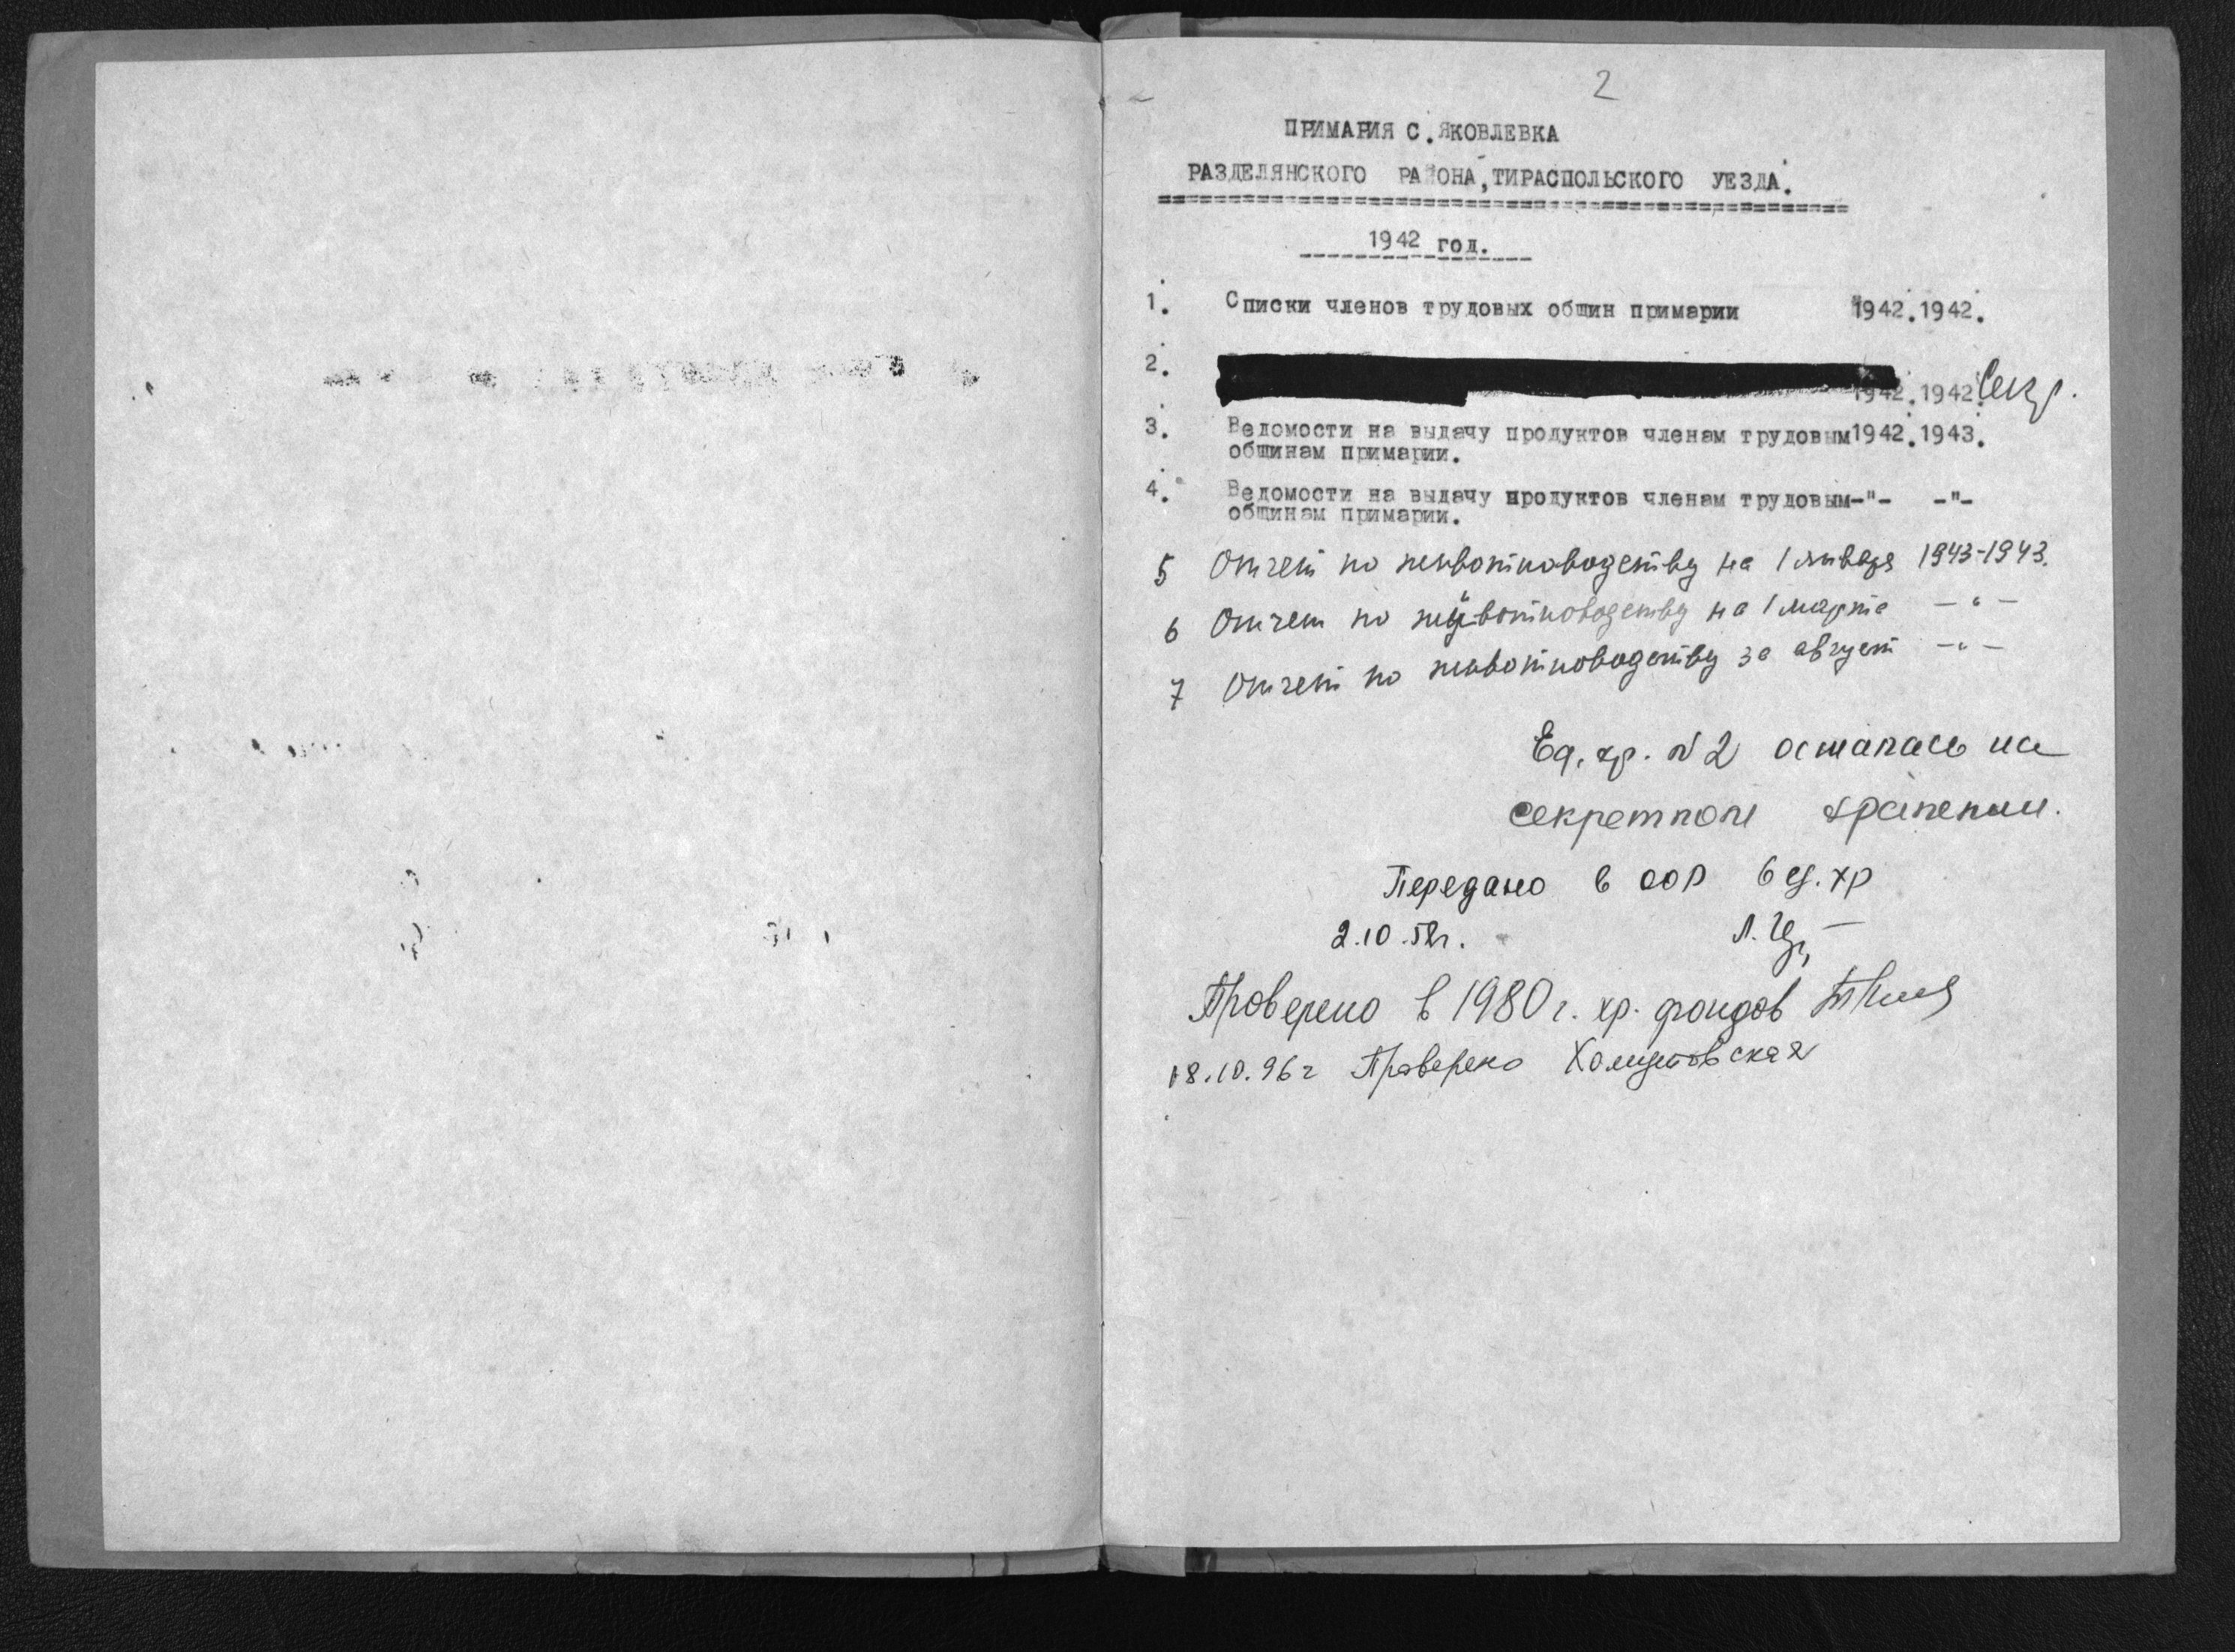 2
ПРИМАРИЯ С. ЯКОВЛЕВКА
РАЗДЕЛЯНСКОГО РАЙОНА, ТИРАСПОЛЬСКОГО УЕЗДА.
1942 год.
1. Списки членов трудовых общин примарии 1942. 1942.
2. 1942. 1942. Секр.
3. Ведомости на выдачу продуктов членам трудовым 1942. 1943.
общинам примарии.
4. Ведомости на выдачу продуктов членам трудовым -"- -"-
общинам примарии.
5 Отчет по животноводству на 1 января 1943-1943.
6 Отчет по животноводству на 1 марта -"-
7 Отчет по животноводству за август -"-
Ед. хр. №2 осталась на
секретном хранении.
Передано в ООР 6 ед. хр
2.10.58г. Л.
Проверено в 1980г. хр. фондов
18.10.96г Проверено Хомутовская